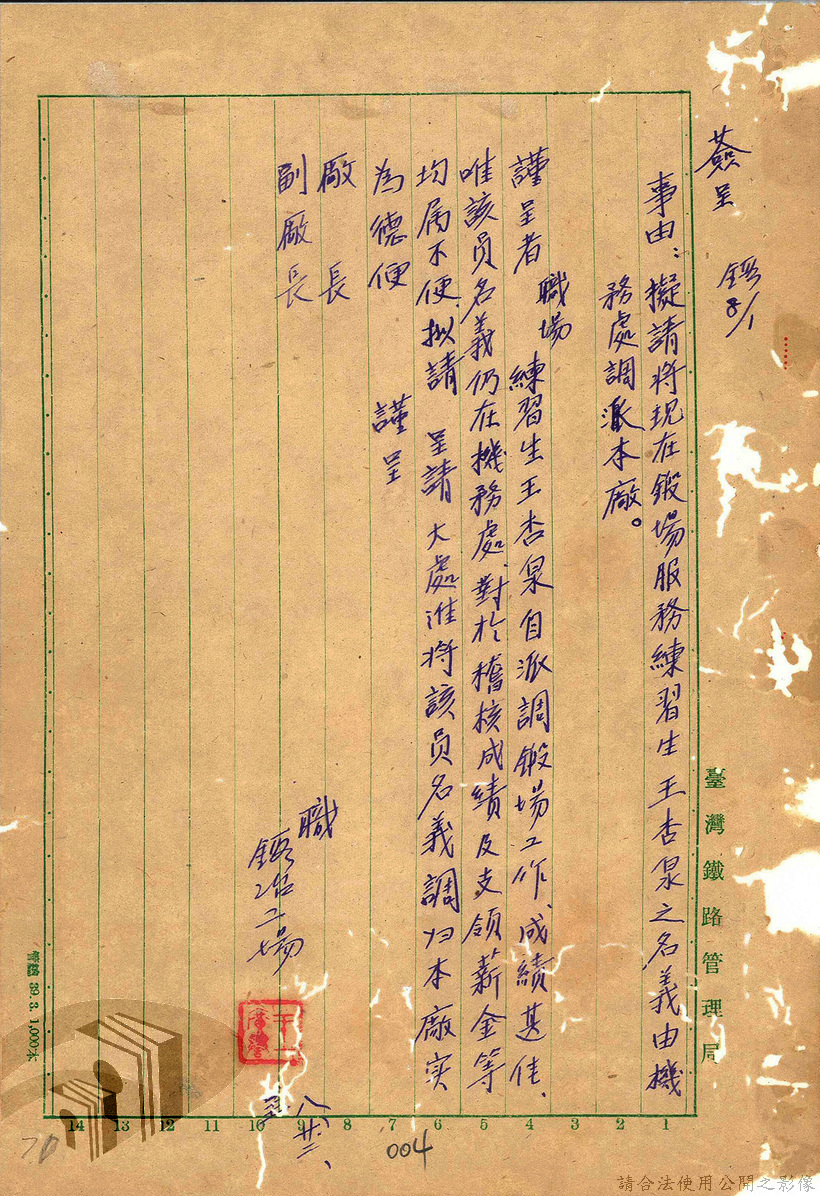 簽呈
鍛 8/1
事由：擬請將現在鍛場服務練習生王杏泉之名義由機
務處調派本廠。
謹呈者 職場 練習生王杏泉自派調鍛場工作、成績甚佳、
唯該员名義仍在機務處、對於稽核成績及支領薪金等
均属不便、拟請 呈請大處准將該员名義調归本廠实
為德便
謹呈
廠長
副廠長
職
鍛冶工場
八廿二、
臺灣鐵路管理局
14 13 12 11 10 9 8 7 6 5 4 3 2 1
39. 3. 1,000本
004
請合法使用公開之影像